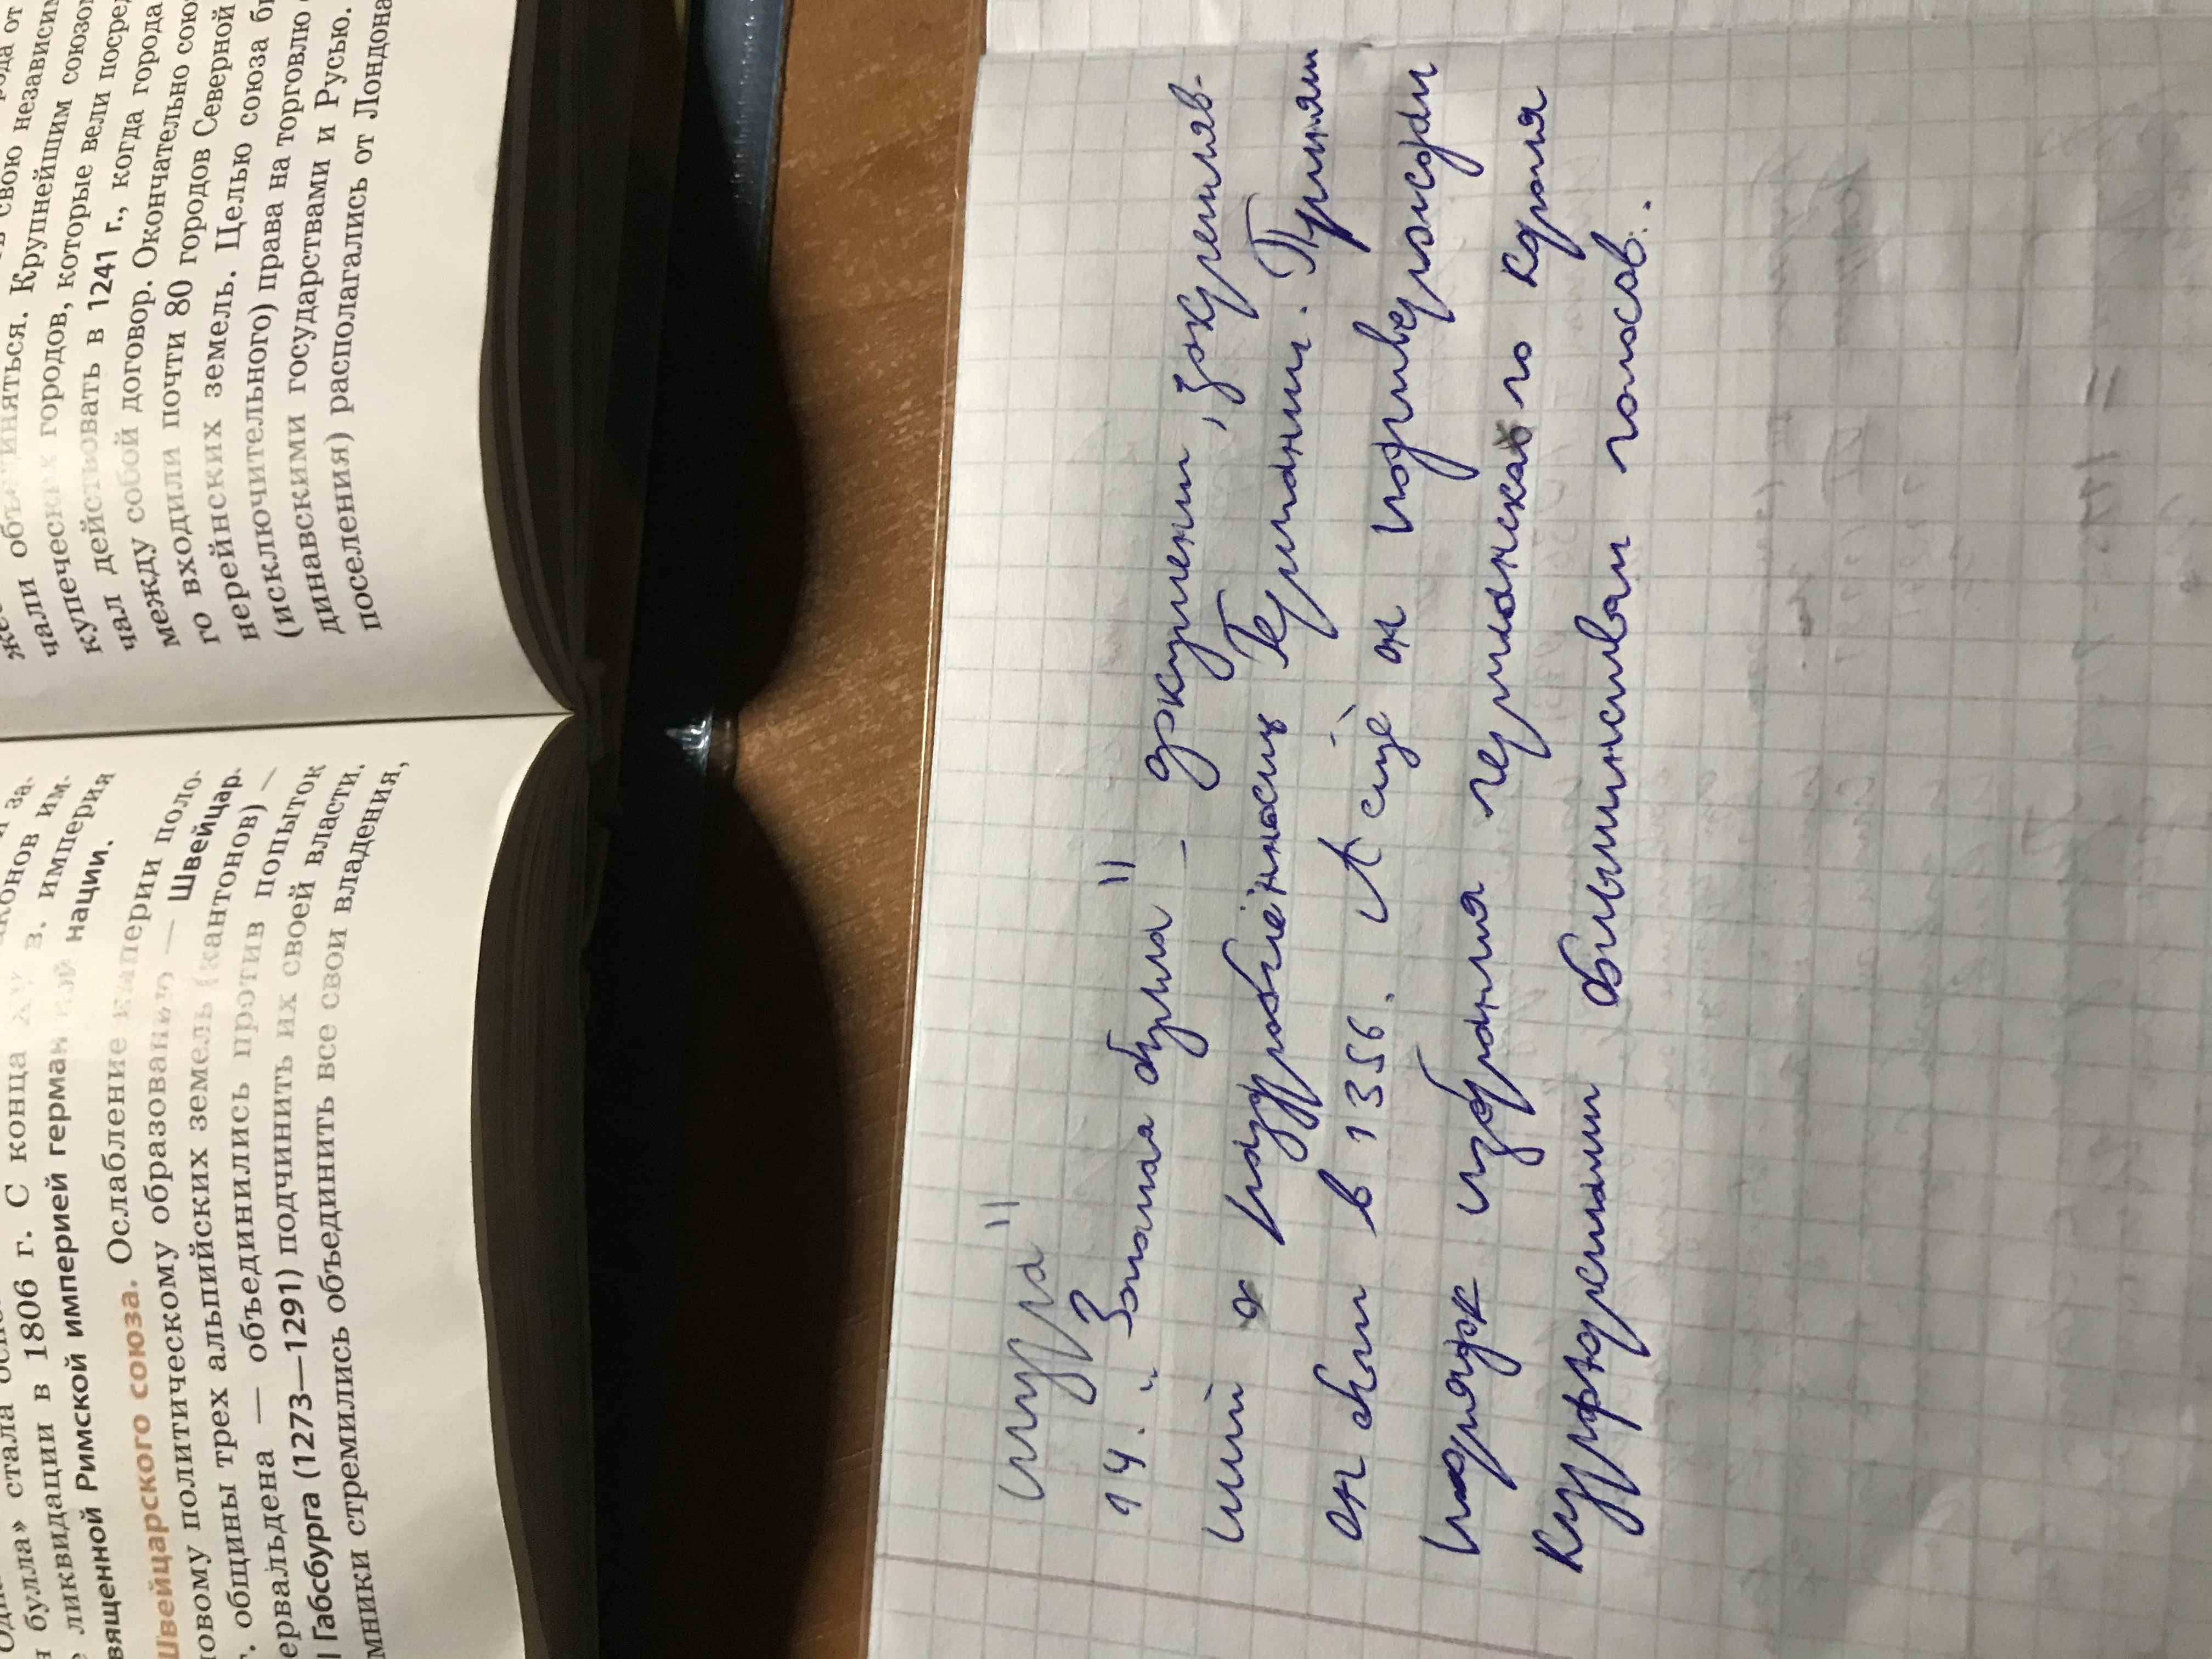 чали объединяться. Крупнейшим союзом
купеческих городов, которые вели посред
чал действовать в 1241 г., когда города
между собой договор. Окончательно сою
го входили почти 80 городов Северной
нерейнских земель. Целью союза бы
(исключительного) права на торговлю
динавскими государствами и Русью.
поселения) располагались от Лондона
булла» стала
ликвидации в 1806 г. С конца XV в. империя
вященной Римской империей германской нации.
Швейцарского союза. Ослабление империи поло-
новому политическому образованию — Швейцар-
г. общины трех альпийских земель (кантонов) —
ервальдена — объединились против попыток
I Габсбурга (1273—1291) подчинить их своей власти.
мники стремились объединить все свои владения,
14. "Золотая булла" - документ, закрепляв-
ший раздробленность Германии. Принят
он был в 1356. А ещё он подтверждал
порядок избрания германского короля
курфюрстами большинством голосов.